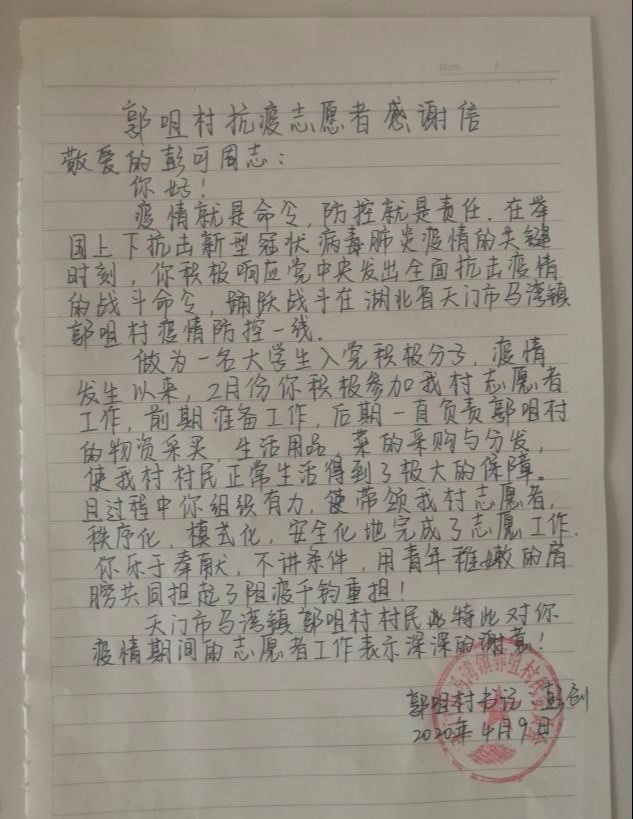 Date. /
郭咀村抗疫志愿者感谢信
敬爱的彭可周志:
你好!
疫情就是命令,防控就是责任.在举
国上下抗击新型冠状病毒肺炎疫情的关键
时刻,你积极响应党中央发出全面抗击疫情
的战斗命令,踊跃战斗在湖北省天门市马湾镇
郭咀村疫情防控一线.
做为一名大学生入党积极分子,疫情
发生以来,2月份你积极参加我村志愿者
工作,前期准备工作,后期一直负责郭咀村
的物资采买,生活用品,菜的采购与分发,
使我村村民正常生活得到了极大的保障。
且过程中你组织有力,使带领我村志愿者,
秩序化,模式化,安全化地完成了志愿工作.
你乐于奉献,不讲条件,用青年稚嫩的肩
膀共同担起了阻疫千钧重担!
天门市马湾镇郭咀村村民特此对你
疫情期间的志愿者工作表示深深的谢意!
郭咀村书记 彭
2020年4月9日
马湾镇郭咀村